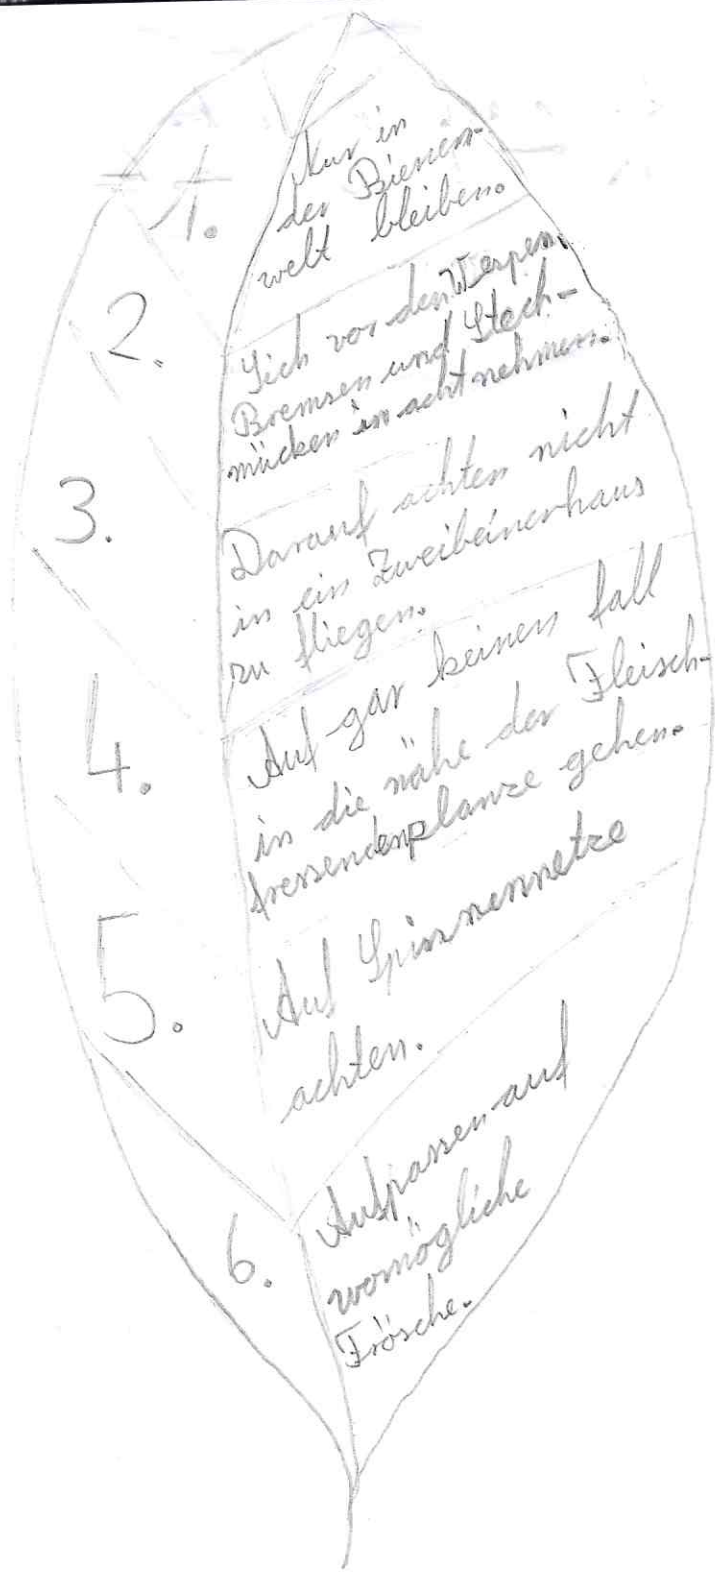 1.
Nur in
der Bienen-
welt bleiben.
2.
Sich vor den Wespen.
Bremsen und Stech-
mücken in acht nehmen.
3.
Darauf achten nicht
in ein Zweibeinerhaus
zu fliegen.
4.
Auf gar keinem fall
in die nähe der Fleisch-
fressendenplanze gehen.
5.
Auf Spinnennetze
achten.
6.
Aufpassen auf
womögliche
Frösche.